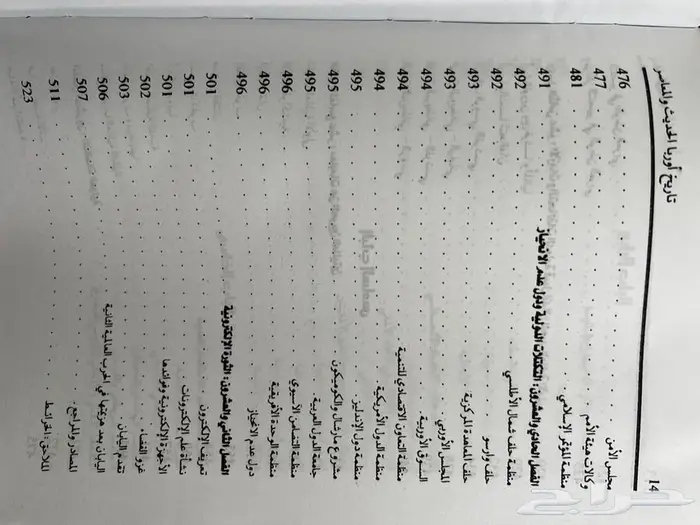 14 تاريخ أوربا الحديث والمعاصر
مجلس الأمن . . . 476
وكالات هيئة الأمم . . . 477
منظمة المؤتمر الإسلامي . . . 481
الفصل الحادي والعشرون: التكتلات الدولية ودول عدم الانحياز . . . 491
منظمة حلف شمال الأطلسي . . . 492
حلف وارسو . . . 492
حلف المعاهدة المركزية . . . 493
المجلس الأوربي . . . 493
السوق الأوربية . . . 494
منظمة التعاون الاقتصادي للتنمية . . . 494
منظمة الدول الأمريكية . . . 494
منظمة دول الإنديز . . . 495
مشروع مارشال والكوميكون . . . 495
جامعة الدول العربية . . . 495
منظمة التضامن الآسيوي . . . 496
منظمة الوحدة الأفريقية . . . 496
دول عدم الانحياز . . . 496
الفصل الثاني والعشرون: الثورة الإلكترونية
تعريف الإلكترون . . . 501
نشأة علم الإلكترونات . . . 501
الأجهزة الإلكترونية وفوائدها . . . 501
غزو الفضاء . . . 502
تقدم اليابان . . . 503
اليابان بعد هزيمتها في الحرب العالمية الثانية . . . 506
المصادر والمراجع . . . 507
الملاحق: الخرائط . . . 511
523
حراج